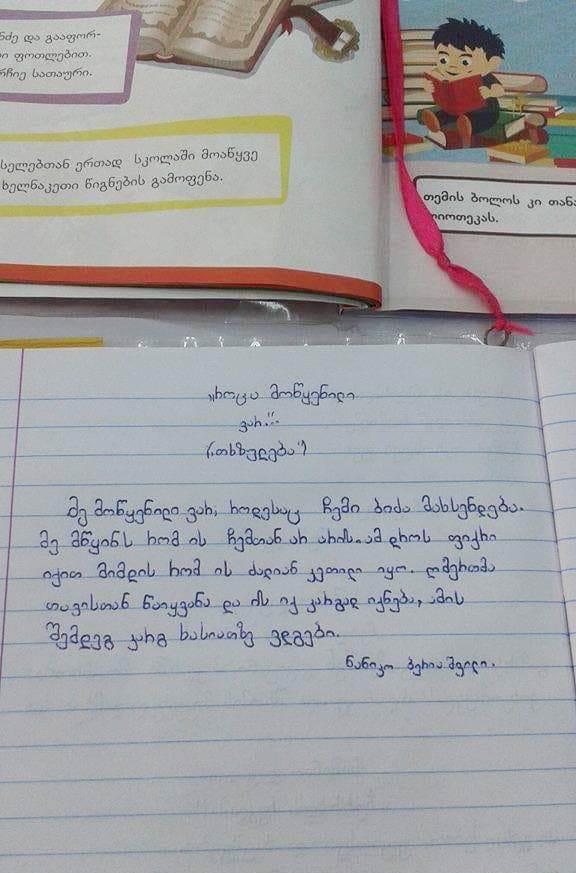 ნძე და გააფორ-
ი ფოთლებით.
რჩიე სათაური.
სელებთან ერთად სკოლაში მოაწყვე
ხელნაკეთი წიგნების გამოფენა.
თემის ბოლოს კი თანა
იოთეკას.
„როცა მოწყენილი
ვარ..."
(„თხზულება")
მე მოწყენილი ვარ, როდესაც ჩემი ბიძა მახსენდება.
მე მწყინს რომ ის ჩემთან არ არის. ამ დროს ფიქრი
იქით მიმდის რომ ის ძალიან კეთილი იყო. ღმერთმა
თავისთან წაიყვანა და ის იქ კარგად იქნება, ამის
შემდეგ კარგ ხასიათზე ვდგები.
ნანიკო ბერიაშვილი.